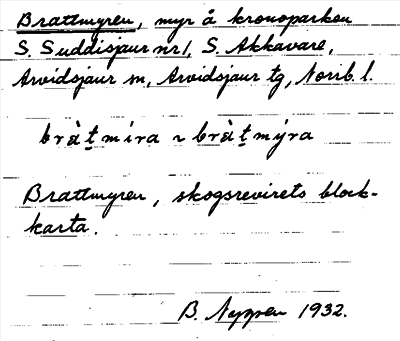 Brattmyren, myr å kronoparken
S. Suddisjaur nr 1, S. Akkavare,
Arvidsjaur sn, Arvidsjaur tg, Norrb. l.
bràt̠míra ~ bràt̠mýra
Brattmyren, skogsrevirets block-
karta.
B. Nygren 1932.